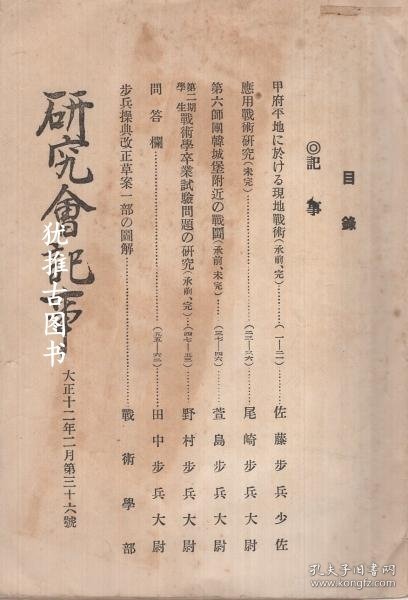 目錄
◎記事
甲府平地に於ける現地戰術(承前、完)………(一—二一)佐藤步兵少佐
應用戰術研究(未完)………(二二—三六)尾崎步兵大尉
第六師團韓城堡附近の戰鬪(承前、未完)………(三七—四六)萱島步兵大尉
第二期學生戰術學卒業試驗問題の硏究(承前、完)…(四七—五三)野村步兵大尉
問答欄………(五五—六二)田中步兵大尉
步兵操典改正草案一部の圖解………戰術學部
研究會記事
大正十二年二月第三十六號
犹推古图书
孔夫子旧书网